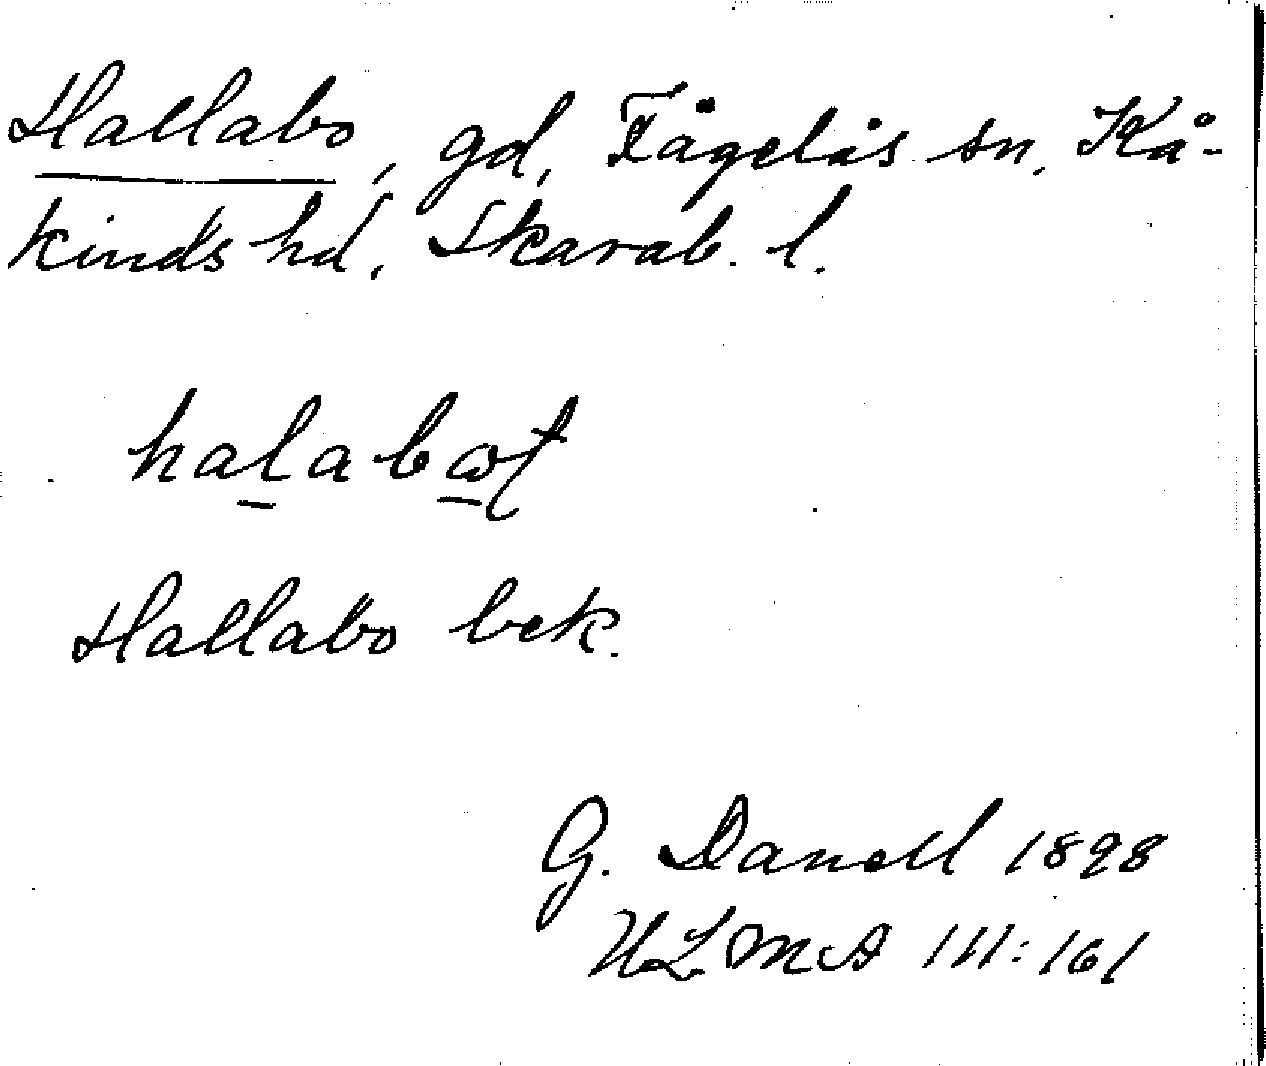 Hallabo, gd, Fågelås sn, Kå-
kinds hd, Skarab. l.
Hallabo bek.
G. Danell 1898
ULMA 111:161